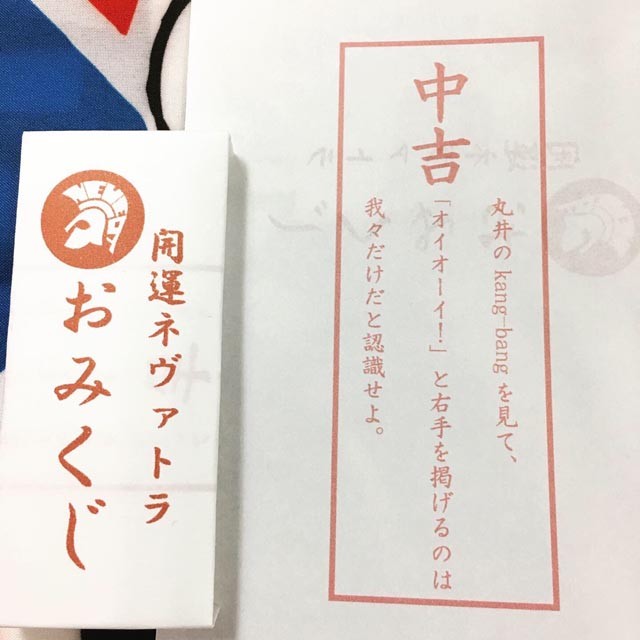 開運ネヴァトラ
おみくじ
中吉
丸井の kang-bang を見て、
「オイオーイ！」と右手を掲げるのは
我々だけだと認識せよ。